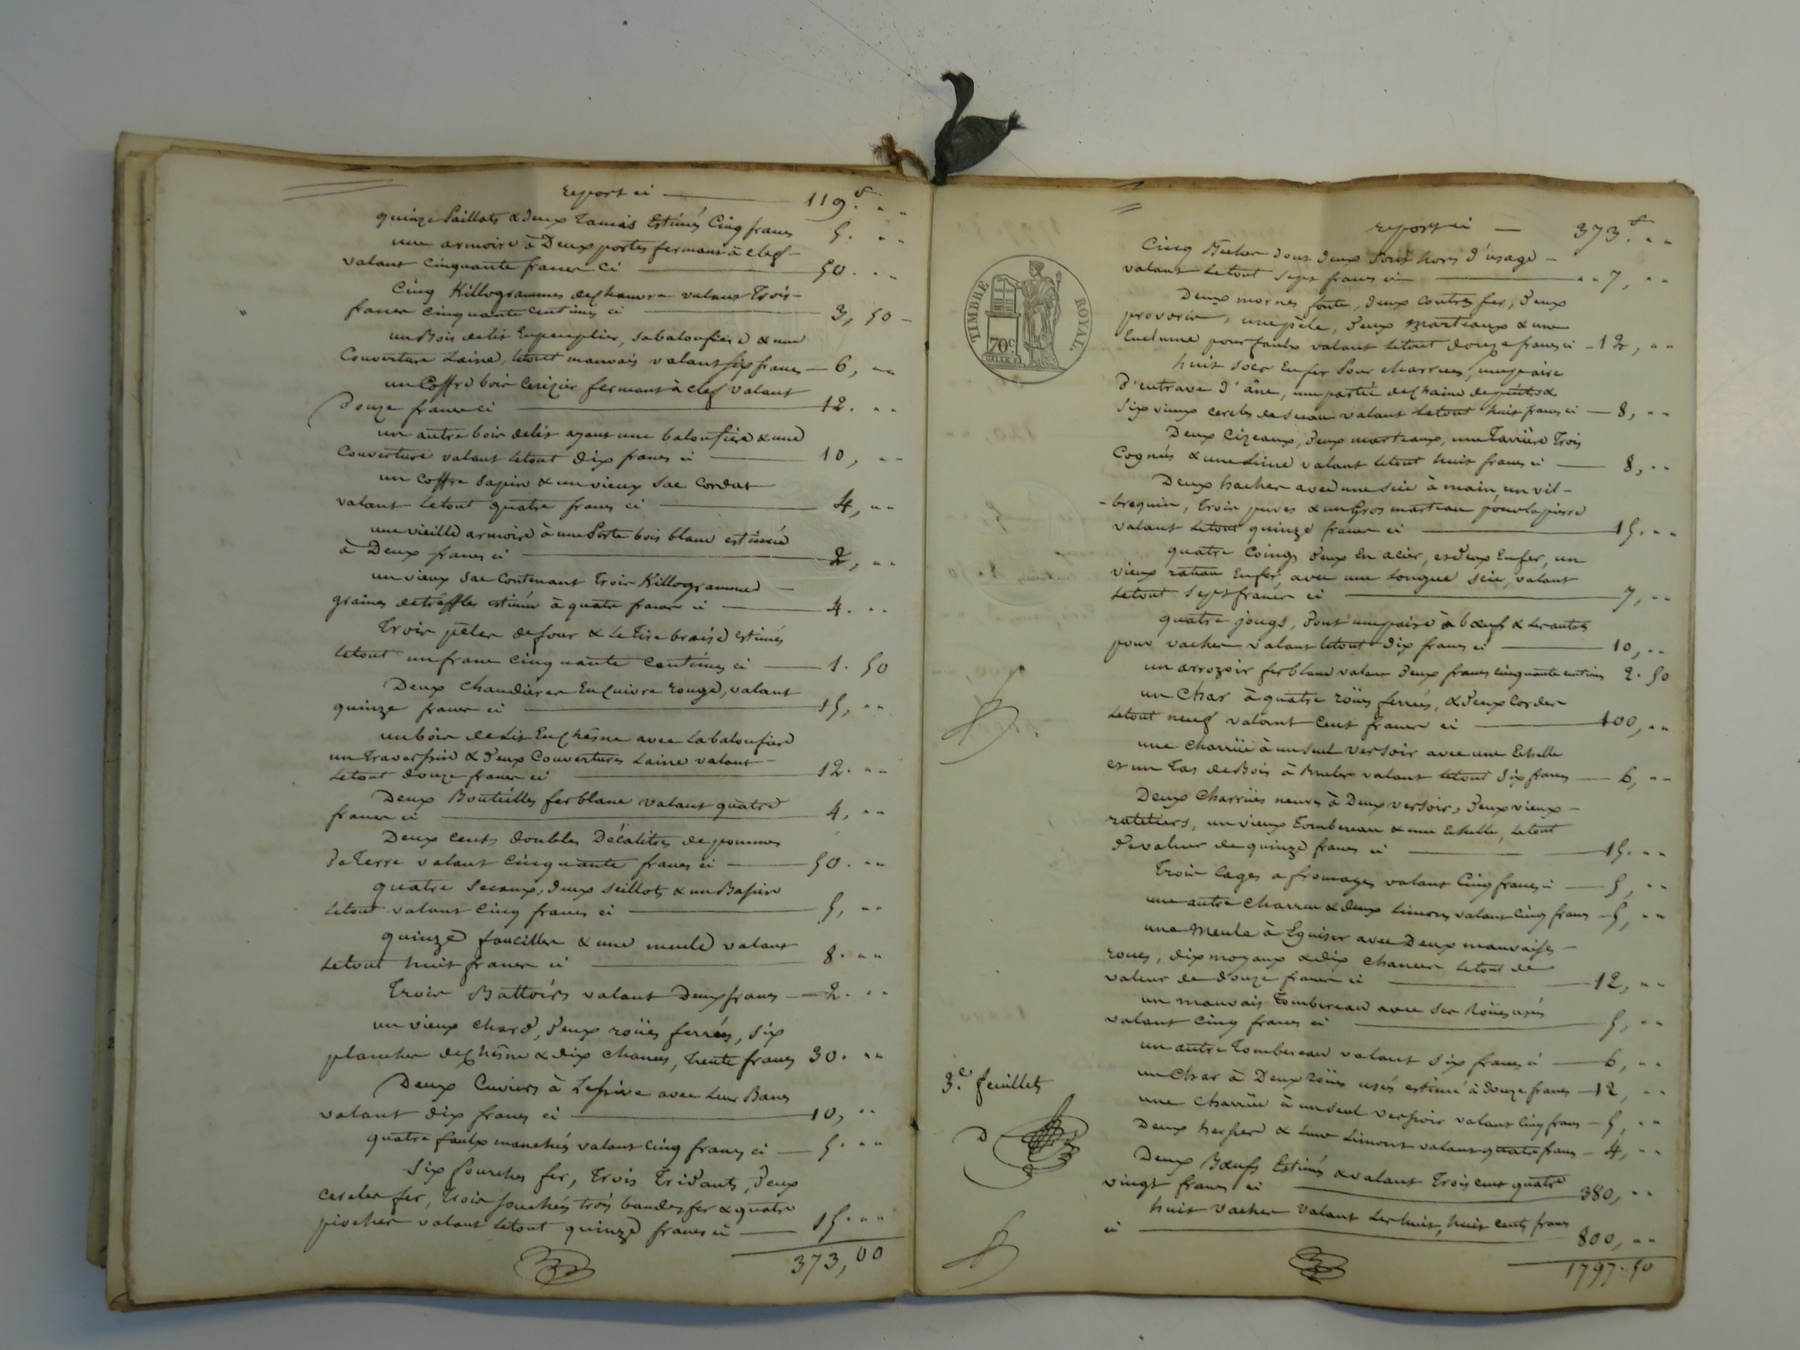 report ci 119.f " "
quinze paillats & deux Tamis Estimés Cinq francs 5. " "
une armoire à Deux portes fermant à clef
valant cinquante francs Ci 50. " "
Cinq Killogrammes de chanvre valant trois
francs cinquante centimes ci 3, 50
un Bois de lit En peuplier, sa baloufière & une
Couverture Laine, letout mauvais valant six francs 6, " "
un Coffre bois Cerizier fermant à clef valant
Douze francs ci 12. " "
un autre bois de lit ayant une baloufière & une
Couverture valant letout dix francs ci 10, " "
un Coffre Sapin & un vieux Sac
valant letout quatre francs ci 4, " "
une vieille armoire à une Porte bois blanc estimée
à Deux francs ci 2, " "
un vieux Sac Contenant trois Killogrammes
graines de treffles estimée à quatre francs ci 4. " "
Trois pèles de four & le Tire braise estimés
letout un franc cinquante centimes ci 1. 50
Deux chaudières En Cuivre rouge, valant
quinze francs ci 15, " "
un bois de Lit En Chêsne avec la baloufière
un traversin & deux Couvertures Laine valant
letout douze francs ci 12. " "
Deux Bouteilles ferblanc valant quatre
francs ci 4, " "
Deux cents doubles Décalitres de pommes
de Terre valant cinquante francs ci 50. " "
quatre Seceaux, deux Seillots & un Bassin
letout valant cinq francs ci 5, " "
quinze faucilles & une meule valant
letout huit francs ci 8. " "
Trois Battoirs valant Deux francs 2. " "
un vieux chard, deux roües ferrées, six
planches de Chêsne & dix chanees, trente francs 30. " "
Deux Cuviers à Lessive avec leur Bancs
valant dix francs ci 10, " "
quatre faulx manchés valant Cinq francs ci 5. " "
Six fourches fer, Trois Tridants, deux
cercles fer, Trois trois bandes fer & quatre
pioches valant letout quinze francs ci 15. " "
373,00
report ci 373.f " "
Cinq dont deux Sont hors d'usage
valant letout Sept francs ci 7, " "
Deux mornes fonte, deux contres fer, deux
, une pèle, deux marteaux & une
Enclume pour faulx valant letout douze francs ci 12, " "
huit Socs En fer Pour charrues, une paire
d'entrave d'âne, une partie de Chaine de &
Six vieux cercles de Sceau valant letout huit francs ci 8, " "
Deux Cizeaux, deux marteaux, une Tarrière Trois
Cognés & une Lime valant letout huit francs ci 8, " "
Deux haches avec une Scie à main, un vil-
-brequin, trois & un Gros marteau pour la pierre
valant letout quinze francs ci 15. " "
quatre Coings deux En acier, et deux En fer, un
vieux rateau En fer, avec une longue Scie, valant
letout Sept francs ci 7, " "
quatre jougs, dont une paire à boeufs & les autres
pour vaches valant letout dix francs ci 10, " "
un arrozoir ferblanc valant deux francs cinquante centimes 2. 50
un Char à quatre roües ferrées, & deux Cordes
letout neuf valant Cent francs ci 100, " "
une charrüe à un seul versoir avec une Echelle
et un Tas de Bois à Bruler valant letout Six francs 6, " "
Deux Charrües neuves à Deux versoirs, deux vieux
rateliers, un vieux Tombereau & une Echelle, letout
de valeur de quinze francs ci 15. " "
Trois Cages a fromages valant Cinq francs ci 5, " "
une autre Charrue & deux Limons valant cinq francs 5, " "
une Meule à Eguiser avec Deux mauvaises
roues, dix moyaux & dix Chanees letout de
valeur de douze francs ci 12, " "
un mauvais Tombereau avec Ses Roües usés
valant cinq francs ci 5, " "
un autre Tombereau valant six francs ci 6, " "
un Char à Deux roües usés estimé à douze francs 12, " "
une Charrüe à un seul versoir valant Cinq francs 5, " "
Deux herses & leur Limons valant quatre francs 4, " "
Deux Boeufs Estimés & valant Trois cent quatre
vingt francs ci 380, " "
huit vaches valant les huit, huit cents francs
ci 800, " "
1797. 50
TIMBRE ROYAL.
70c
3.e feuillet